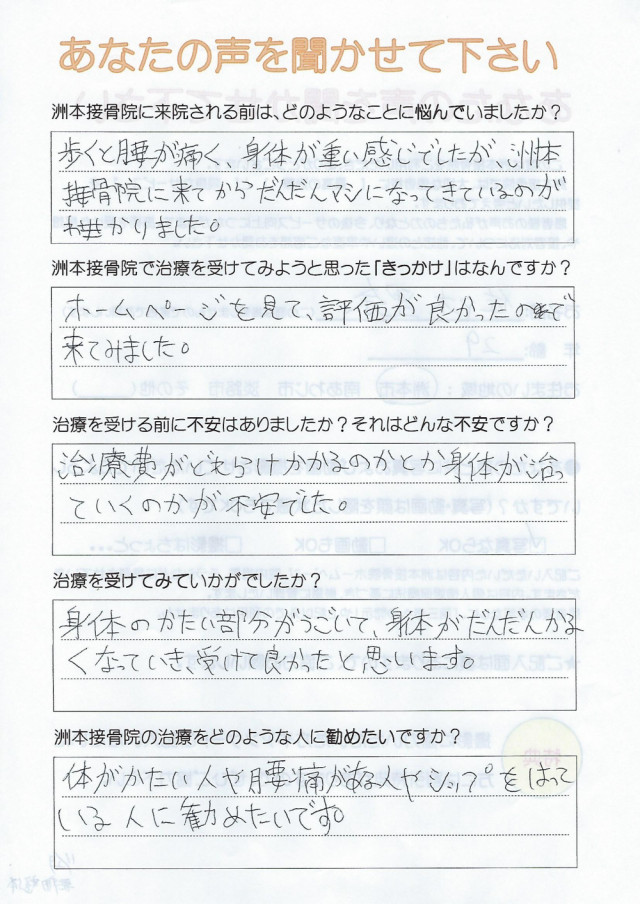 あなたの声を聞かせて下さい
洲本接骨院に来院される前は、どのようなことに悩んでいましたか？
歩くと腰が痛く、身体が重い感じでしたが、洲本
接骨院に来てからだんだんマシになってきているのが
分かりました。
洲本接骨院で治療を受けてみようと思った「きっかけ」はなんですか？
ホームページを見て、評価が良かったので
来てみました。
治療を受ける前に不安はありましたか？それはどんな不安ですか？
治療費がどれらけかかるのかとか身体が治っ
ていくのかが不安でした。
治療を受けてみていかがでしたか？
身体のかたい部分がうごいて、身体がだんだんかる
くなっていき、受けて良かったと思います。
洲本接骨院の治療をどのような人に勧めたいですか？
体がかたい人や腰痛がある人やシップをはって
いる人に勧めたいです。